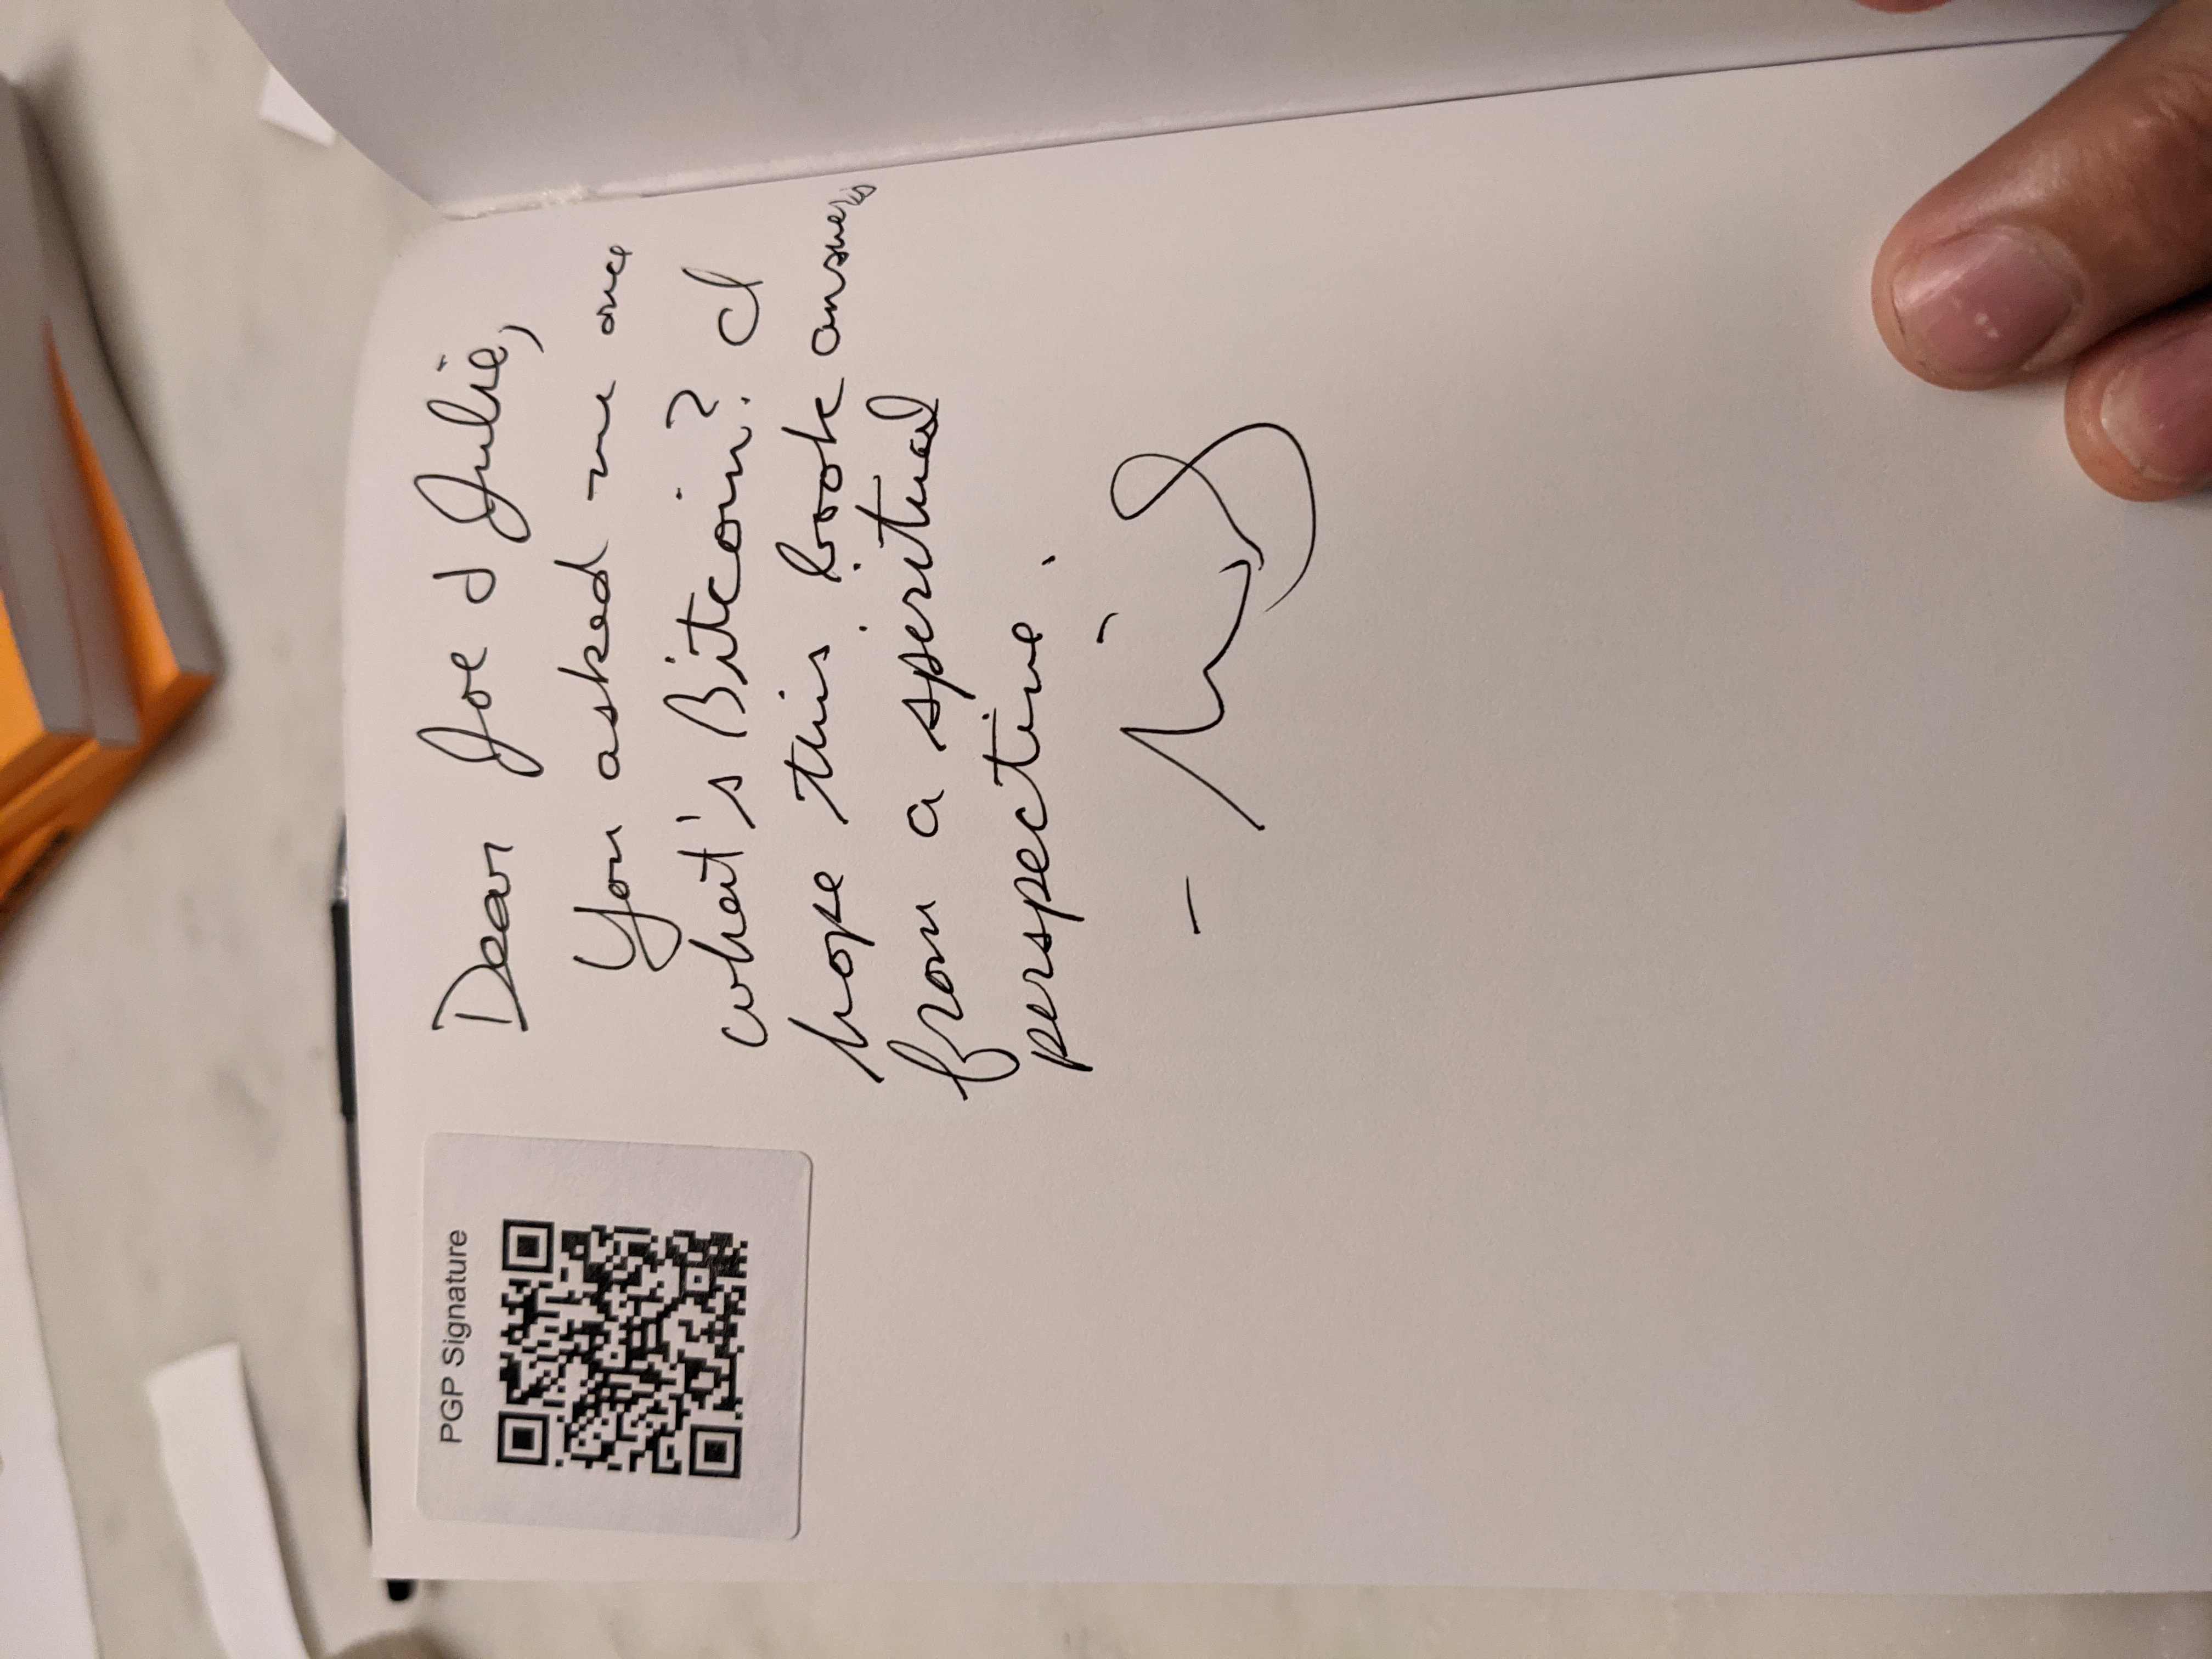 PGP Signature
Dear Joe & Julie,
You asked me once
what's Bitcoin? I
hope this book answers
from a spiritual
perspective.